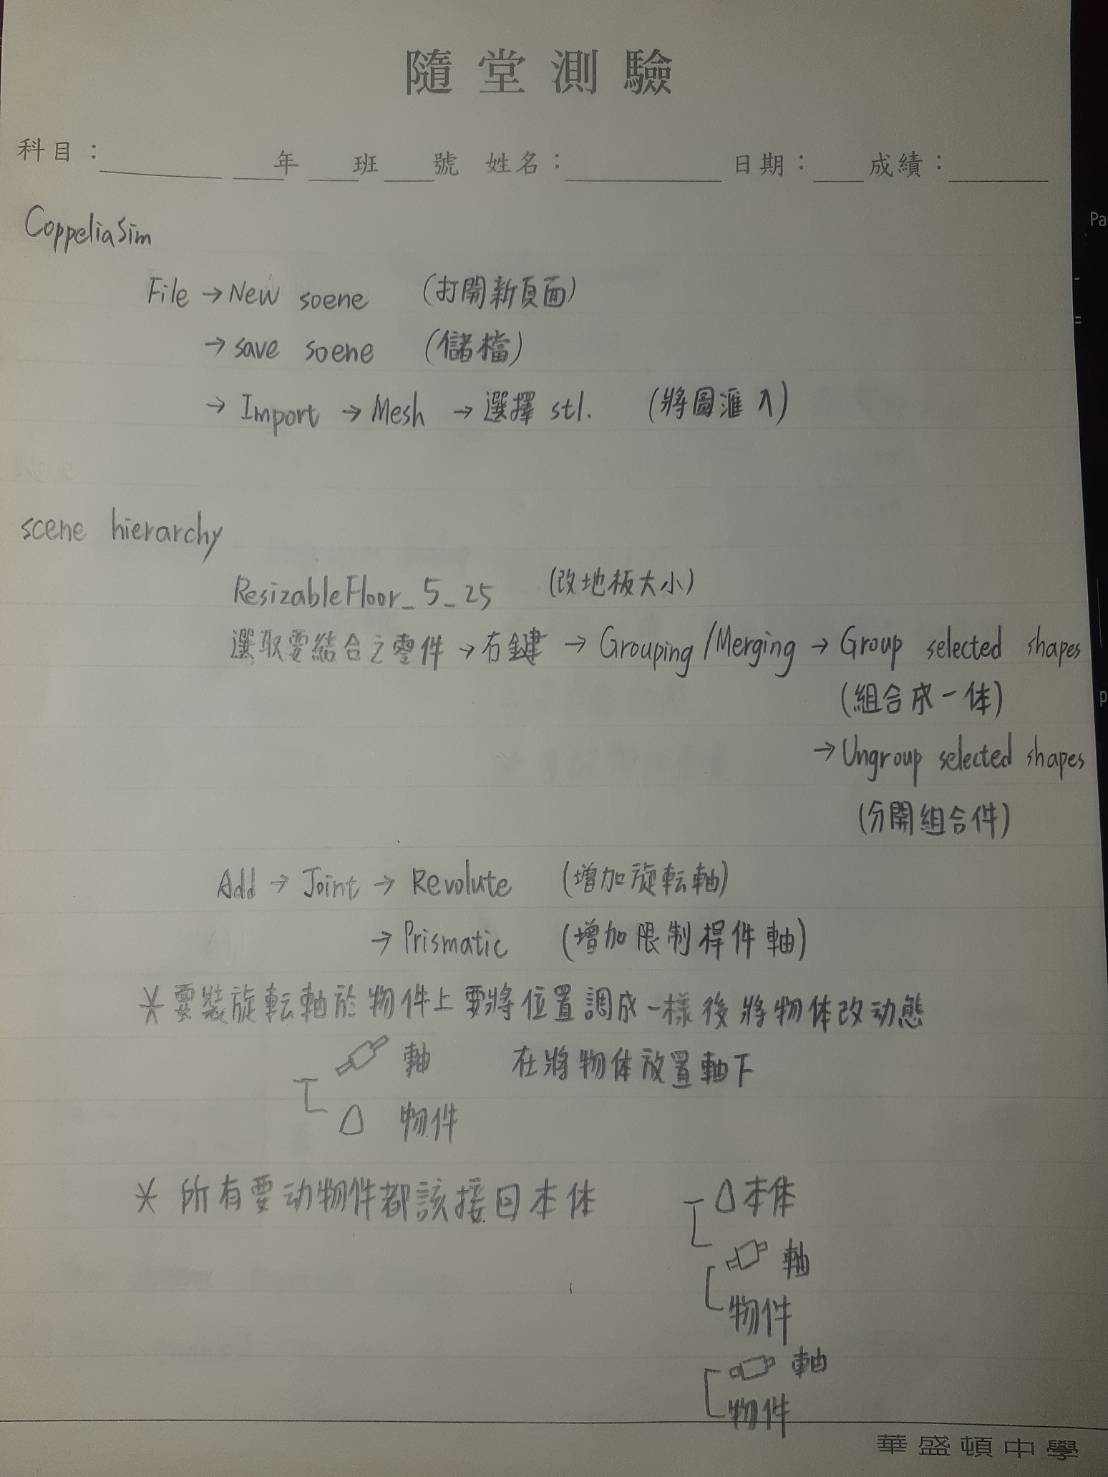 隨堂測驗
科目： 年 班 號 姓名： 日期： 成績：
CoppeliaSim
File → New soene (打開新頁面)
→ save soene (儲檔)
→ Import → Mesh → 選擇 stl. (將圖滙入)
scene hierarchy
ResizableFloor_5_25 (改地板大小)
選取要結合之零件 → 右鍵 → Grouping/Merging → Group selected shapes
(組合成一体)
→ Ungroup selected shapes
(分開組合件)
Add → Joint → Revolute (增加旋転軸)
→ Prismatic (增加限制桿件軸)
* 要裝旋転軸於物件上要將位置調成一樣後將物体改动態
軸 在將物体放置軸下
物件
* 所有要动物件都該接回本体
本体
軸
物件
軸
物件
華盛頓中學